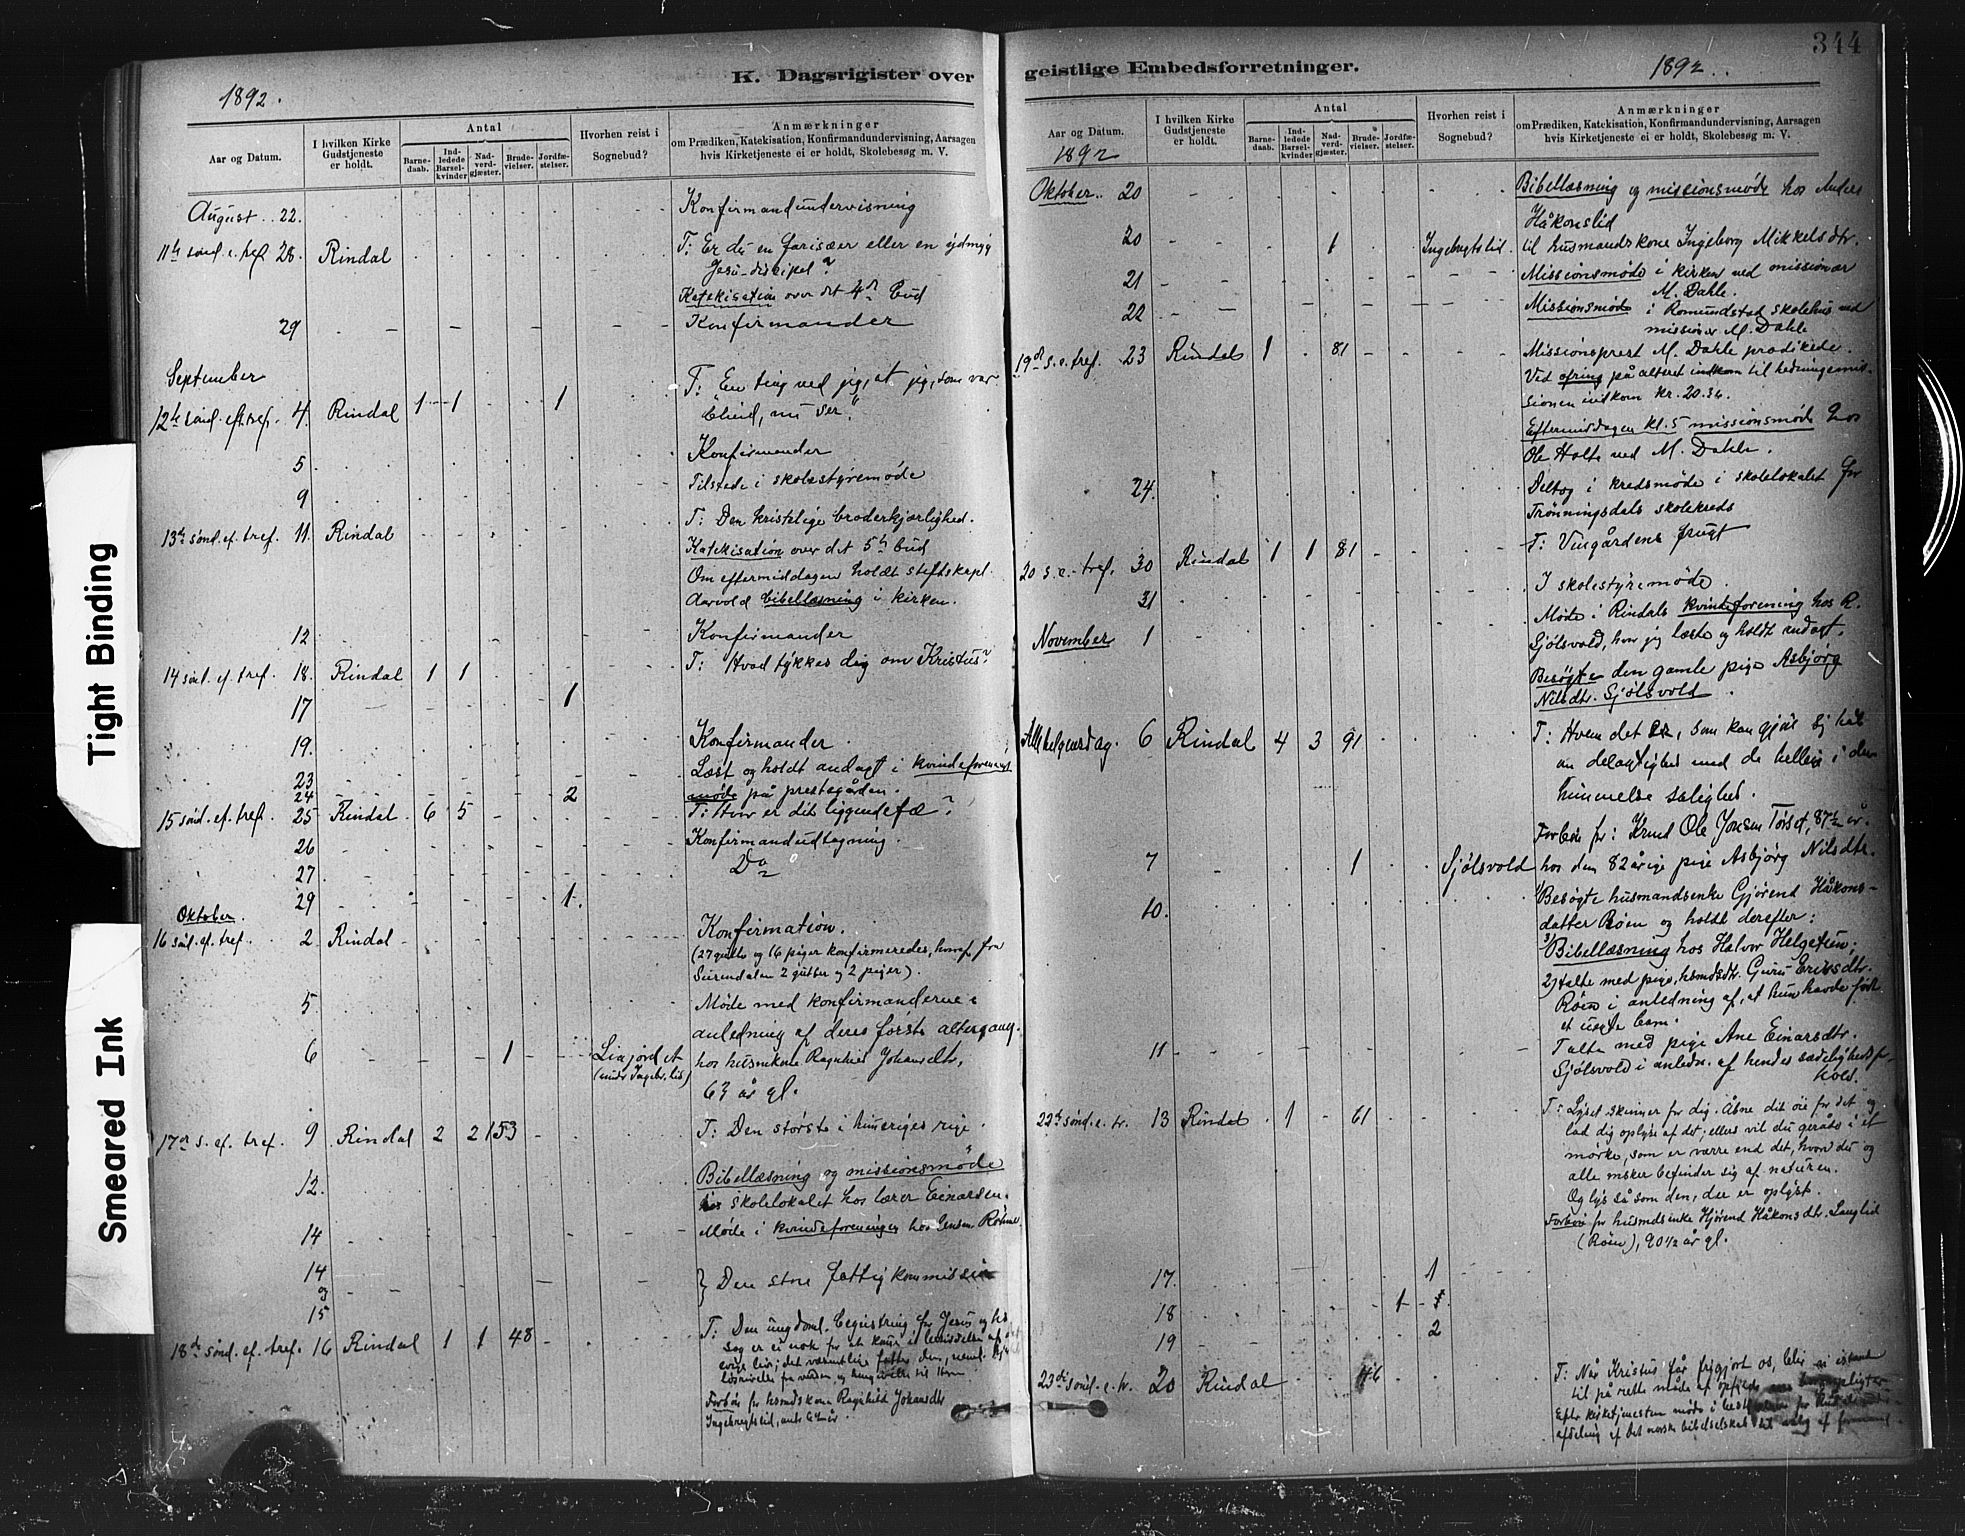 344
K. Dagsrigister over
1892.
Aar og Datum.
I hvilken Kirke Gudstjeneste er holdt.
Antal
Barne-daab.
Ind-ledede Barsel-kvinder
Nad-verd-gjæster.
Brude-vielser.
Jordfæ-stelser.
Hvorhen reist i Sognebud?
Anmærkninger
om Prædiken, Katekisation, Konfirmandundervisning, Aarsagen
hvis Kirketjeneste ei er holdt, Skolebesøg m. V.
August 22. Konfirmandundervisning
11te sønd. e. tref. 28. Rindal T: Er du en farisæer eller en ydmyg
Jesu-discipel?
Katekisation over det 4de bud
29 Konfirmander
September
12te sønd. eft. tref. 4. Rindal 1 1 1 T: "En ting ved jeg, at jeg, som var
blind, nu ser."
5. Konfirmander
9 Tilstede i skolestyremøde
13de sønd. ef. tref. 11. Rindal T: Den kristelige broderkjærlighed.
Katekisation over det 5te bud
Om eftermiddagen holdt stiftskapl.
Aarvold bibellæsning i kirken.
12 Konfirmander
14 sønd. ef. tref. 18. Rindal 1 1 T: Hvad tykkes dig om Kristus?
17 1
19. Konfirmander.
23 Læst og holdt andagt i kvindeforenings
24 2 møde på prestegården.
15 sønd. ef. tref. 25 Rindal 6 5 T: Hvor er dit liggendefæ?
26 Konfirmandudtagning.
27 Do
29 1
Oktober.
16 sønd. ef. tref. 2 Rindal Konfirmation.
(27 gutter og 16 piger konfirmeredes, hvoraf fra
Surendalen 2 gutter og 2 piger).
5 Møde med konfirmanderne i
anledning af deres første altergang.
6 1 (under Ingebr. lid) hos huskone Ragnhild Johansdtr,
63 år gl.
17de s. ef. tref. 9 Rindal 2 2 153 T: Den største i himeriges rige.
12. Bibellæsning og missionsmøde
skolelokalet hos lærer Einarsen.
14 Møde i kvindeforeningen hos
14 og 15 } Den store fattigkommission
18de sønd. ef. tref. 16 Rindal 1 1 48 T: Den ungdoml. begeistring for Jesus og hs
sag er ei nok for at komme i besiddelse af det
evige liv;
Forbøn for husmdskone Ragnhild Johansdtr
Ingebregtslid,
geistlige Embedsforretninger.
1892.
Aar og Datum.
I hvilken Kirke Gudstjeneste er holdt.
Antal
Barne-daab.
Ind-ledede Barsel-kvinder
Nad-verd-gjæster.
Brude-vielser.
Jordfæ-stelser.
Hvorhen reist i Sognebud?
Anmærkninger
om Prædiken, Katekisation, Konfirmandundervisning, Aarsagen
hvis Kirketjeneste ei er holdt, Skolebesøg m. V.
1892
Oktober 20 Bibellæsning og missionsmøde hos Anders
Håkonslid
20 1 Ingebrigtslid. til husmandskone Ingeborg Mikkelsdtr.
21 Missionsmøde i kirken ved missionær
M. Dahle.
22 Missionsmøde i Romundstad skolehus ved
missionær M. Dahle
19de s. e. tref. 23 Rindal 1 81 Missionsprest M. Dahle prædikede.
Ved ofring på alteret indkom til hedningemis-
sionen indkom kr. 20.36.
Eftermiddagen kl. 5 missionsmøde hos
Ole Holte ved M. Dahle.
24. Deltog i kredsmøde i skolelokalet for
Trønningsdals skolekreds
20 s. e. tref. 30 Rindal 1 1 81 T: Vingårdens frugt
31 I skolestyremøde.
November 1 Møde i Rindals kvindeforening hos R.
Sjølsvold, hvor jeg læste og holdt andagt.
Besøgte den gamle pige Asbjørg
Nilsdtr. Sjølsvold.
Allehelgensdag. 6 Rindal 4 3 91 T: Hvem det er, som kan gjøre sig håb
om delagtighed med de hellige i den
himmelske salighed.
Forbøn for: Knud Ole Jonsen Tørset, 87½ år.
7 1 Sjølsvold hos den 82 årige pige Asbjørg Nilsdtr.
10. 1) Besøgte husmandsenke Gjørend Håkons-
datter Røen og holdt derefter:
3) Bibellæsning hos Halvor Helgetun;
2) talte med pige, husmdsdtr. Guru Eriksdtr.
Røen i anledning af, at hun havde født
et uægte barn.
11 Talte med pige Ane Einarsdtr.
Sjølsvold i anledn. af hendes sædelighedsfor-
hold.
22de sønd. e. tr. 13 Rindal 1 61 T: Lyset skinner for dig. Åbne dit øie for det og
lad dig oplyse af det; ellers vil du geråde i et
mørke, som er værre end det, hvori du og
alle msker befinder sig af naturen.
Og lys så som den, der er oplyst.
Forbøn for husmdsenke Gjørend Håkonsdtr. Langlid
(Røen), 90½ år gl.
17. 1
18 1 1
19 2
23de sønd. e. tr. 20 Rindal 46 T: Når Kristus får frigjort os, blir vi istand
til på rette måde at opfylde
Efter kirketjenesten møde i
afdeling af det norske bibelselskab
Tight Binding
Smeared Ink